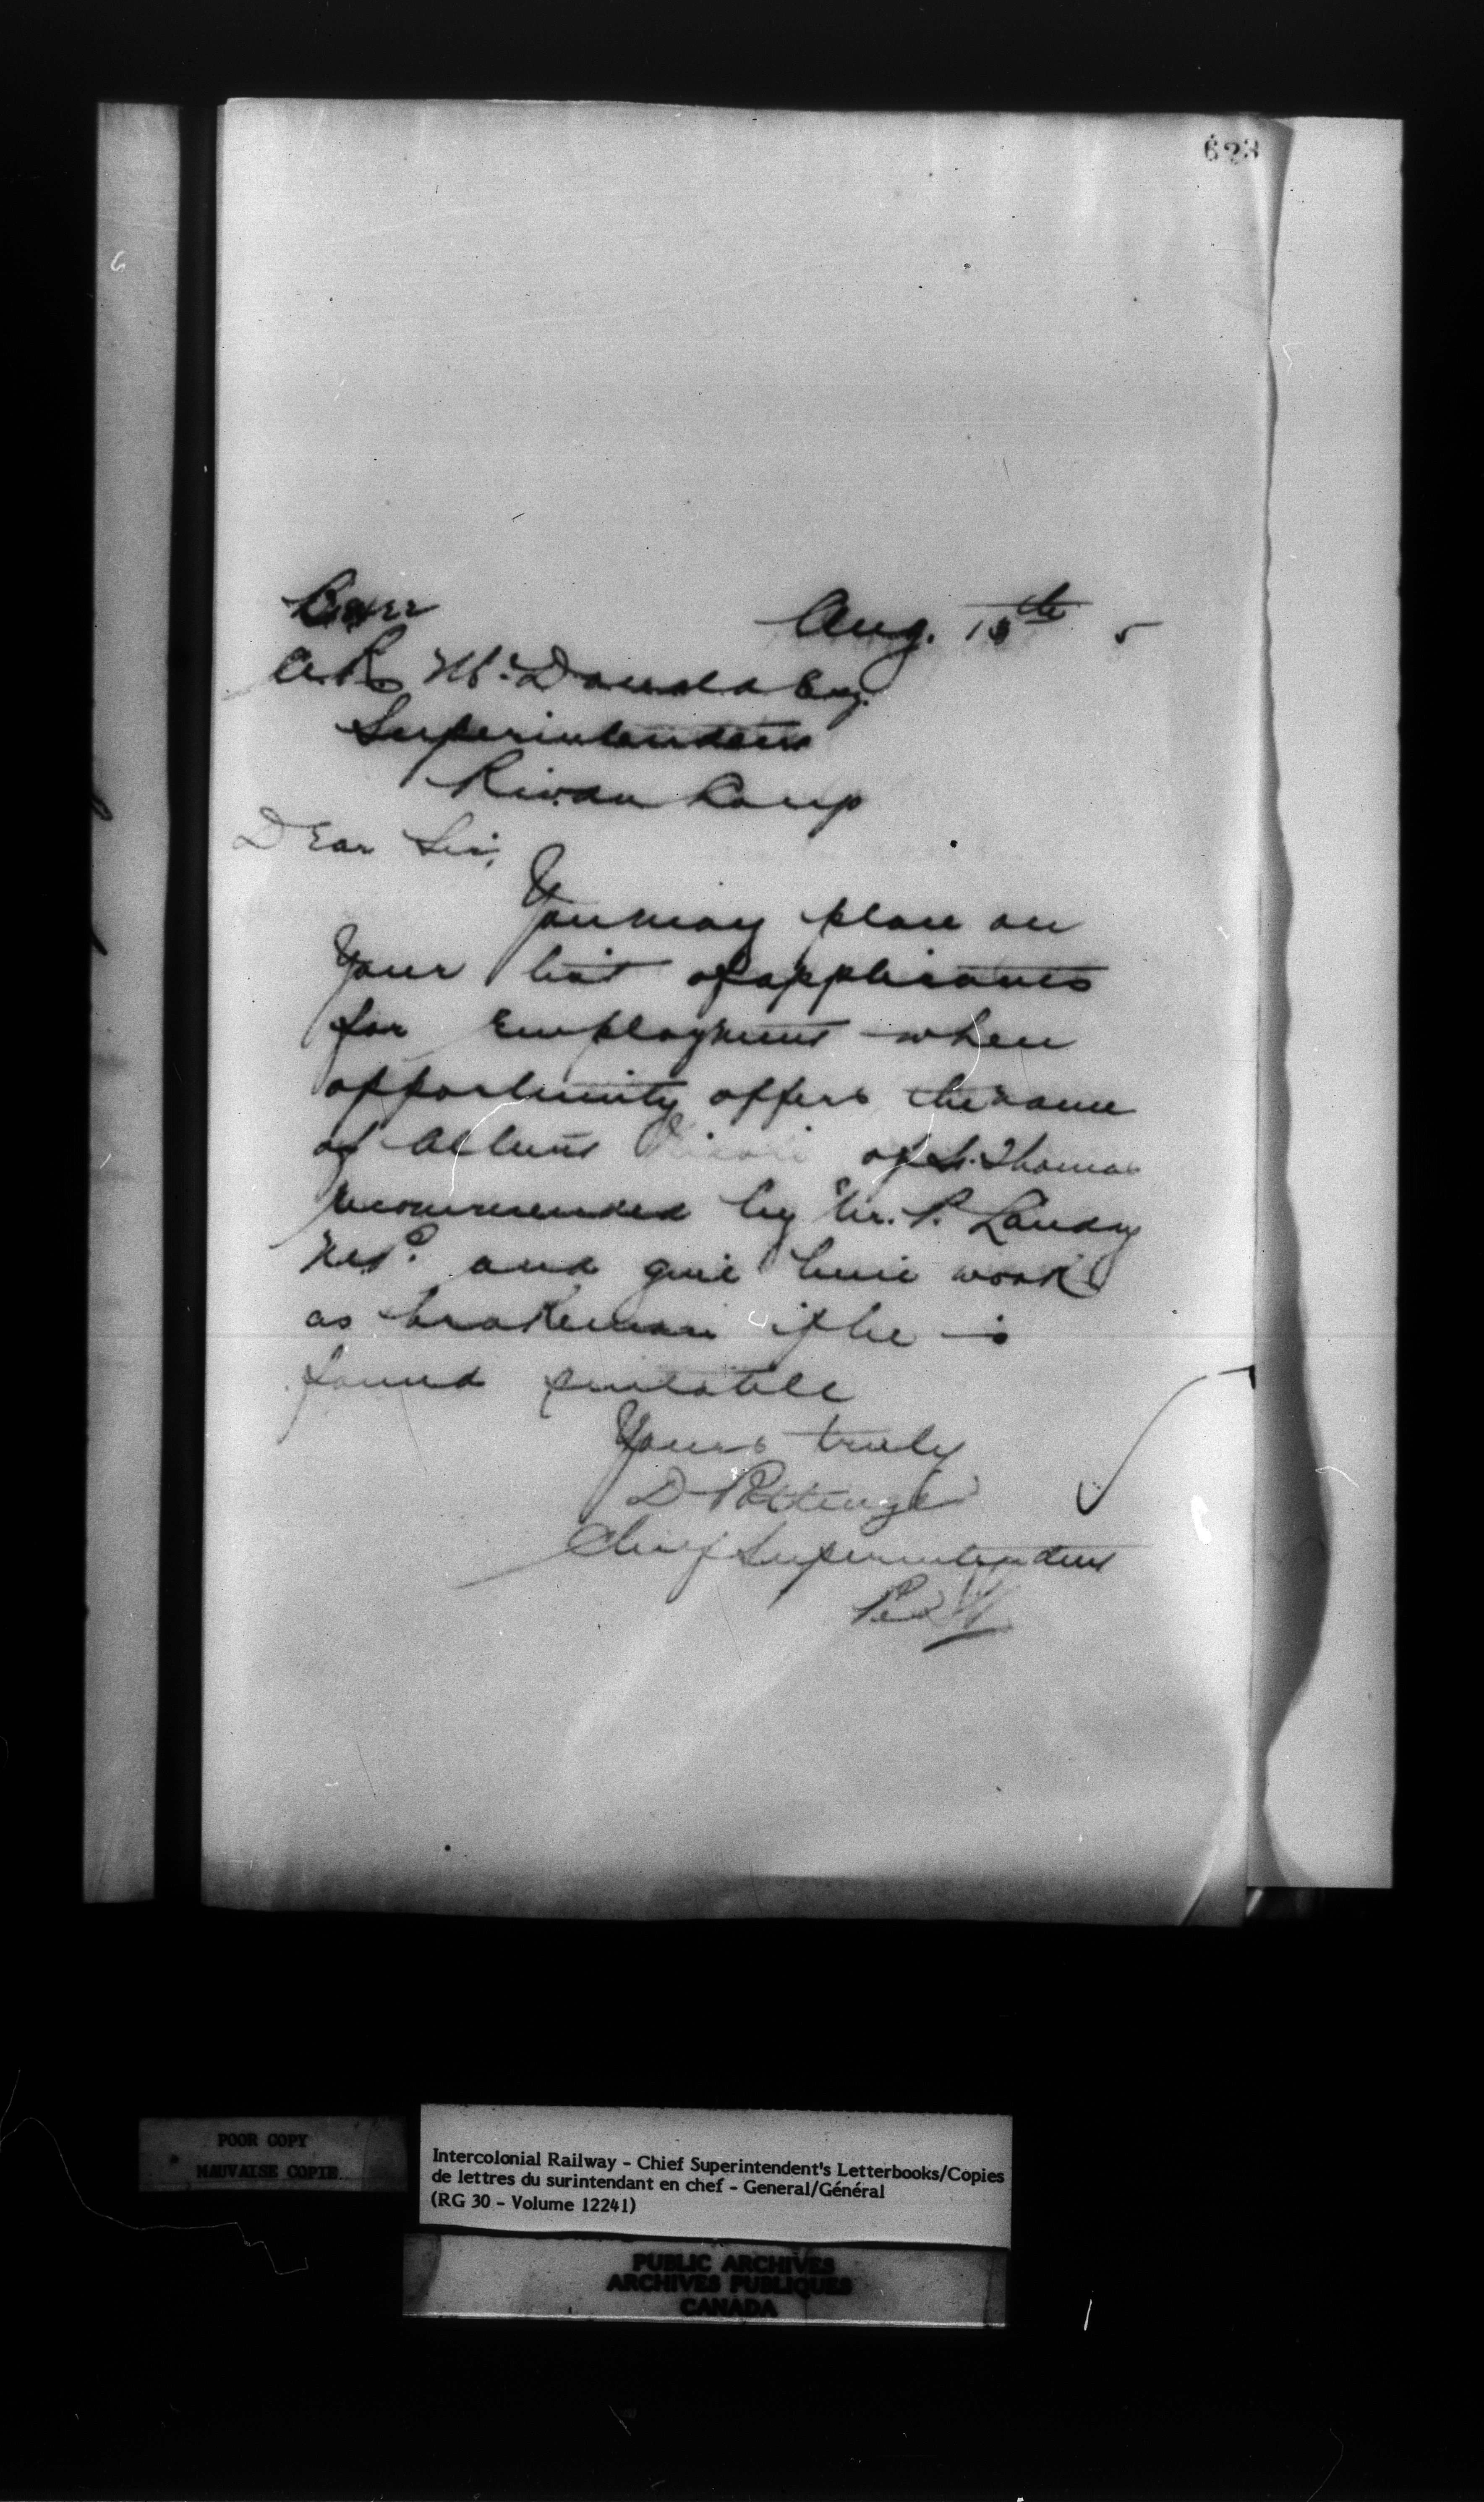 623
Aug. 15th 5
A.R. McDonald Esq.
Superintendent
Rivdu Loup
Dear Sir,
You may place on
your list of applicants
for Employment when
opportunity offers the name
of of St. Thomas
recommended by Mr. P. Landry
M.P. and give him work
as brakeman if he is
found suitable
Yours truly
D Pottinger
Chief Superintendent
Per
POOR COPY
MAUVAISE COPIE
Intercolonial Railway - Chief Superintendent's Letterbooks/Copies
de lettres du surintendant en chef - General/Général
(RG 30 - Volume 12241)
PUBLIC ARCHIVES
ARCHIVES PUBLIQUES
CANADA